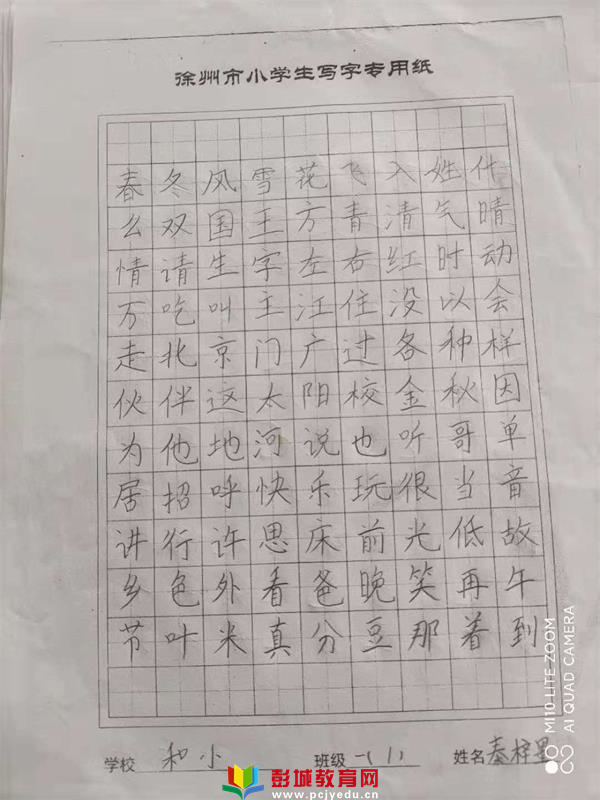 徐州市小学生写字专用纸
春冬风雪花飞入姓什
么双国王方青清气晴
情请生字左右红时动
万吃叫主江住没以会
走北京门广过各种样
伙伴这太阳校金秋因
为他地河说也听哥单
居招呼快乐玩很当音
讲行许思床前光低故
乡色外看爸晚笑再午
节叶米真分豆那着到
学校 和小 班级 一(1) 姓名 秦梓墨
彭城教育网
www.pcjyedu.cn
MI 10 LITE ZOOM
AI QUAD CAMERA